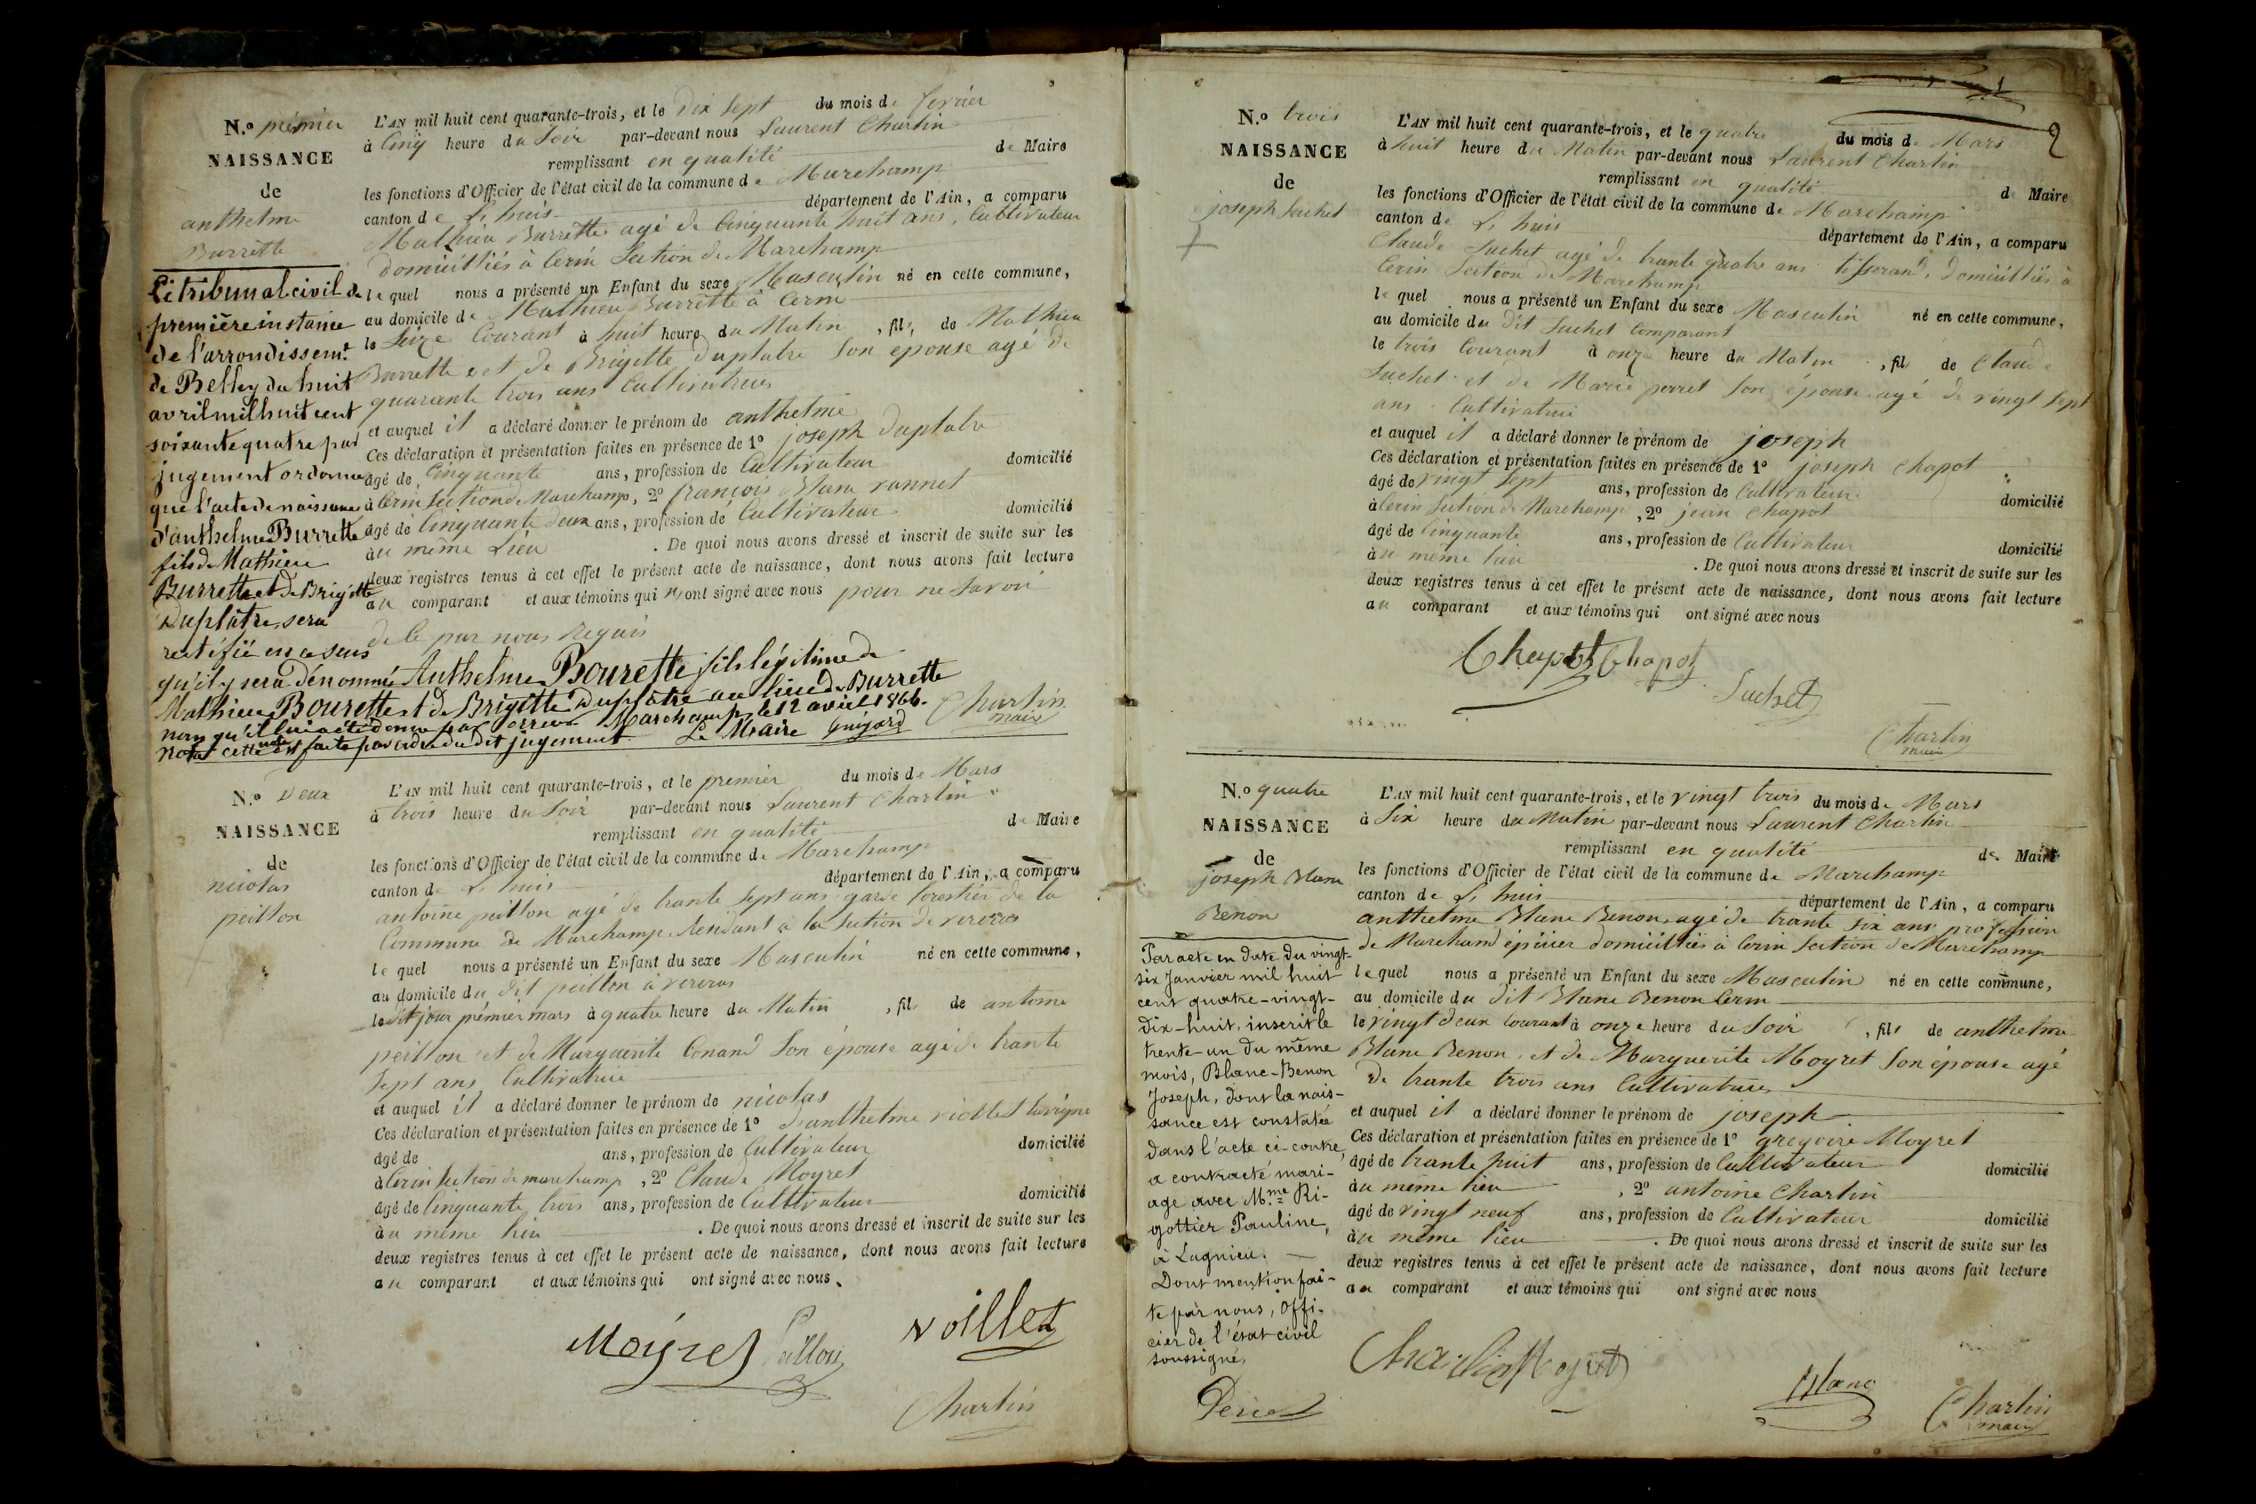 N.º prémier
NAISSANCE
de
anthelme
Burrette
L'AN mil huit cent quarante-trois, et le dix sept du mois de fevrier
à Cinq heure du Soir par-devant nous Laurent Charlin
remplissant en qualité de Maire
les fonctions d'Officier de l'état civil de la commune de Marchamp
canton de L'huis département de l'Ain, a comparu
Mathieu Burrette agé de Cinquante huit ans, Cultivateur
domicilliés à Cerin Section de Marchamp
le quel nous a présenté un Enfant du sexe Masculin né en cette commune,
au domicile de Mathieu Burrette à Cerin
le Seize Courant à huit heure du Matin, fils de Mathieu
Burrette et de Brigitte Duplatre Son épouse agé de
quarante trois ans Cultivatrice
et auquel il a déclaré donner le prénom de anthelme
Ces déclaration et présentation faites en présence de 1º joseph Duplatre
âgé de Cinquante ans, profession de Cultivateur domicilié
à Cerin Section de Marchamp, 2º françois Blanc
âgé de Cinquante deux ans, profession de Cultivateur domicilié
au même Lieu. De quoi nous avons dressé et inscrit de suite sur les
deux registres tenus à cet effet le présent acte de naissance, dont nous avons fait lecture
au comparant et aux témoins qui n'ont signé avec nous pour ne Savoir
de le par nous Requis
Le tribunal civil de
première instance
de l'arrondissemt
de Belley du huit
avril mil huit cent
soixante quatre par
jugement ordonne
que l'acte de naissance
d'anthelme Burrette
fils de Mathieu
Burrette et de Brigitte
Duplâtre, sera
rectifié en ce sens
qu'il y sera dénommé Anthelme Bourette fils légitime de
Mathieu Bourette et de Brigitte Duplâtre au lieu de Burrette
nom qu'il lui a été donné par erreur Marchamp, le 12 avril 1866.
Nota cette note est faite par ordre du dit jugement Le Maire Guigard
Charlin
maire
N.º Deux
NAISSANCE
de
nicolas
peillon
L'AN mil huit cent quarante-trois, et le premier du mois de Mars
à trois heure du Soir par-devant nous Laurent Charlin
remplissant en qualité de Maire
les fonctions d'Officier de l'état civil de la commune de Marchamp
canton de L'huis département de l'Ain, a comparu
antoine peillon agé de trante Sept ans garde forestier de la
Commune de Marchamp Résidant a la Section de
le quel nous a présenté un Enfant du sexe Masculin né en cette commune,
au domicile du dit peillon à
le dit jour prémier mars à quatre heure du Matin, fils de antoine
peillon et de Marguerite Conand Son épouse agé de trante
Sept ans Cultivatrice
et auquel il a déclaré donner le prénom de nicolas
Ces déclaration et présentation faites en présence de 1º D'anthelme violliet
âgé de ans, profession de Cultivateur domicilié
à Cerin Section de marchamp, 2º Claude Moyret
âgé de Cinquante trois ans, profession de Cultivateur domicilié
au même lieu. De quoi nous avons dressé et inscrit de suite sur les
deux registres tenus à cet effet le présent acte de naissance, dont nous avons fait lecture
au comparant et aux témoins qui ont signé avec nous.
Moyret Peillon voillet
Charlin
2
N.º trois
NAISSANCE
de
joseph Suchet
L'AN mil huit cent quarante-trois, et le quatre du mois de Mars
à huit heure du Matin par-devant nous Laurent Charlin
remplissant en qualité de Maire
les fonctions d'Officier de l'état civil de la commune de Marchamp
canton de L'huis département de l'Ain, a comparu
Claude Suchet agé de trante quatre ans tisserand, domicilliés à
Cerin Section de Marchamp
le quel nous a présenté un Enfant du sexe Masculin né en cette commune,
au domicile du dit Suchet Comparant
le trois Courant à onze heure du Matin, fils de Claude
Suchet et de Marie perret Son épouse agé de vingt Sept
ans Cultivatrice
et auquel il a déclaré donner le prénom de joseph
Ces déclaration et présentation faites en présence de 1º joseph Chapot
âgé de vingt Sept ans, profession de Cultivateur domicilié
à Cerin Section de Marchamp, 2º jean Chapot
âgé de Cinquante ans, profession de Cultivateur domicilié
au même lieu. De quoi nous avons dressé et inscrit de suite sur les
deux registres tenus à cet effet le présent acte de naissance, dont nous avons fait lecture
au comparant et aux témoins qui ont signé avec nous
Chapot Chapot
Suchet
Charlin
maire
N.º quatre
NAISSANCE
de
joseph Blanc
Benon
L'AN mil huit cent quarante-trois, et le vingt trois du mois de Mars
à Six heure du Matin par-devant nous Laurent Charlin
remplissant en qualité de Maire
les fonctions d'Officier de l'état civil de la commune de Marchamp
canton de L'huis département de l'Ain, a comparu
anthelme Blanc Benon, agé de trante six ans profession
de Marchand épicier domicilliés à Cerin Section de Marchamp
le quel nous a présenté un Enfant du sexe Masculin né en cette commune,
au domicile du dit Blanc Benon Cerin
le vingt deux Courant à onze heure du Soir, fils de anthelme
Blanc Benon, et de Marguerite Moyret Son épouse agé
de trante trois ans Cultivatrice
et auquel il a déclaré donner le prénom de joseph
Ces déclaration et présentation faites en présence de 1º gregoire Moyret
âgé de trante huit ans, profession de Cultivateur domicilié
au même lieu, 2º antoine Charlin
âgé de vingt neuf ans, profession de Cultivateur domicilié
au même lieu. De quoi nous avons dressé et inscrit de suite sur les
deux registres tenus à cet effet le présent acte de naissance, dont nous avons fait lecture
au comparant et aux témoins qui ont signé avec nous
Par acte en date du vingt-
six Janvier mil huit
cent quatre-vingt-
dix-huit, inscrit le
trente-un du même
mois, Blanc-Benon
Joseph, dont la nais-
sance est constatée
dans l'acte ci-contre,
a contracté mari-
age avec Mme Ri-
gottier Pauline,
à Lagnieu.
Dont mention fai-
te par nous, offi-
cier de l'état civil
soussigné,
Charlin Moyret
Blanc
Charlin
maire